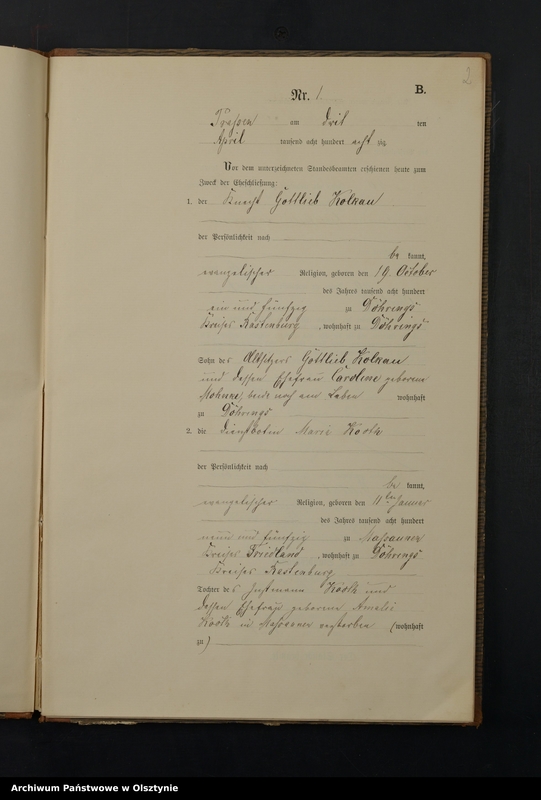 2
Nr. 1
B.
am drit ten
April tausend acht hundert acht zig
Vor dem unterzeichneten Standesbeamten erschienen heute zum
Zweck der Eheschließung:
1. der Knecht Gottlieb Kolkau
der Persönlichkeit nach
be kannt,
evangelischer Religion, geboren den 19. October
des Jahres tausend acht hundert
ein und fünfzig zu Döhrings
Kreises Rastenburg, wohnhaft zu Döhrings
Sohn des Altsitzers Gottlieb Kolkau
und dessen Ehefrau Caroline geborene
beide noch am Leben wohnhaft
zu Döhrings
2. die Dienstbotin Marie
der Persönlichkeit nach
be kannt,
evangelischer Religion, geboren den 11ten Januar
des Jahres tausend acht hundert
neun und fünfzig zu
Kreises Friedland, wohnhaft zu Döhrings
Kreises Rastenburg
Tochter des Instmann und
dessen Ehefrau geborene Amalie
in verstorben (wohnhaft
zu)
Archiwum Państwowe w Olsztynie